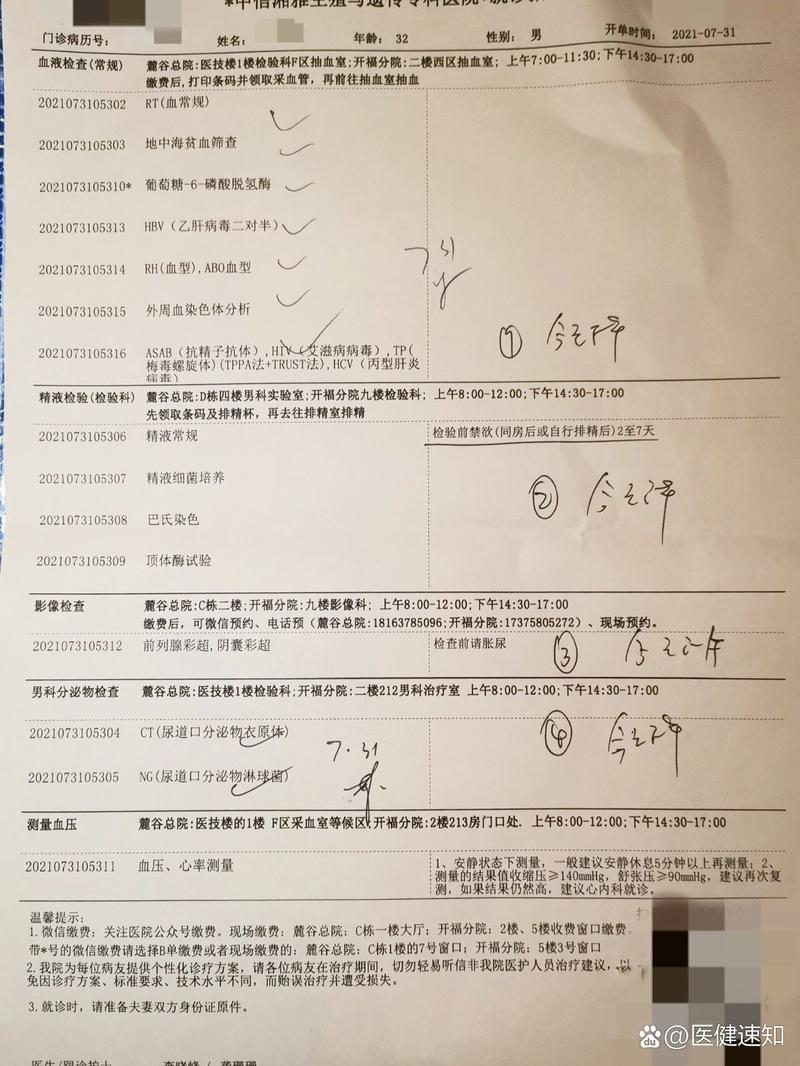 *中信湘雅生殖与遗传专科医院
门诊病历号: 姓名: 年龄: 32 性别: 男 开单时间: 2021-07-31
血液检查(常规) 麓谷总院:医技楼1楼检验科F区抽血室;开福分院:二楼西区抽血室; 上午7:00-11:30;下午14:30-17:00
缴费后,打印条码并领取采血管, 再前往抽血室抽血
2021073105302 RT(血常规)
2021073105303 地中海贫血筛查
2021073105310* 葡萄糖-6-磷酸脱氢酶
2021073105313 HBV (乙肝病毒二对半)
2021073105314 RH(血型),ABO血型
7.31
2021073105315 外周血染色体分析
① 今天上午
2021073105316 ASAB (抗精子抗体),HIV(艾滋病病毒),TP(
梅毒螺旋体)(TPPA法+TRUST法),HCV (丙型肝炎
病毒)
精液检验(检验科) 麓谷总院:D栋四楼男科实验室;开福分院九楼检验科; 上午8:00-12:00;下午14:30-17:00
先领取条码及排精杯, 再去往排精室排精
2021073105306 精液常规 检验前禁欲(同房后或自行排精后)2至7天
2021073105307 精液细菌培养
②
2021073105308 巴氏染色
2021073105309 顶体酶试验
影像检查 麓谷总院:C栋二楼;开福分院:九楼影像科; 上午8:00-12:00;下午14:30-17:00
缴费后, 可微信预约、电话预 (麓谷总院:18163785096;开福分院:17375805272) 、现场预约。
2021073105312 前列腺彩超,阴囊彩超 检查前请胀尿
③
男科分泌物检查 麓谷总院:医技楼1楼检验科;开福分院:二楼212男科治疗室 上午8:00-12:00;下午14:30-17:00
2021073105304 CT(尿道口分泌物衣原体)
④
7.31
2021073105305 NG(尿道口分泌物淋球菌)
测量血压 麓谷总院:医技楼的1楼 F区采血室等候区;开福分院:2楼213房门口处. 上午8:00-12:00;下午14:30-17:00
2021073105311 血压、心率测量 1、安静状态下测量, 一般建议安静休息5分钟以上再测量; 2、
测量的结果值收缩压≥140mmHg, 舒张压≥90mmHg, 建议再次复
测, 如果结果仍然高, 建议心内科就诊。
温馨提示:
1. 微信缴费: 关注医院公众号缴费。现场缴费: 麓谷总院: C栋一楼大厅; 开福分院: 2楼、5楼收费窗口缴费。
带*号的微信缴费请选择B单缴费或者现场缴费的: 麓谷总院: C栋1楼的7号窗口; 开福分院: 5楼3号窗口
2. 我院为每位病友提供个性化诊疗方案, 请各位病友在治疗期间, 切勿轻易听信非我院医护人员治疗建议, 以
免因诊疗方案、标准要求、技术水平不同, 而贻误治疗并遭受损失。
3. 就诊时, 请准备夫妻双方身份证原件。
@医健速知